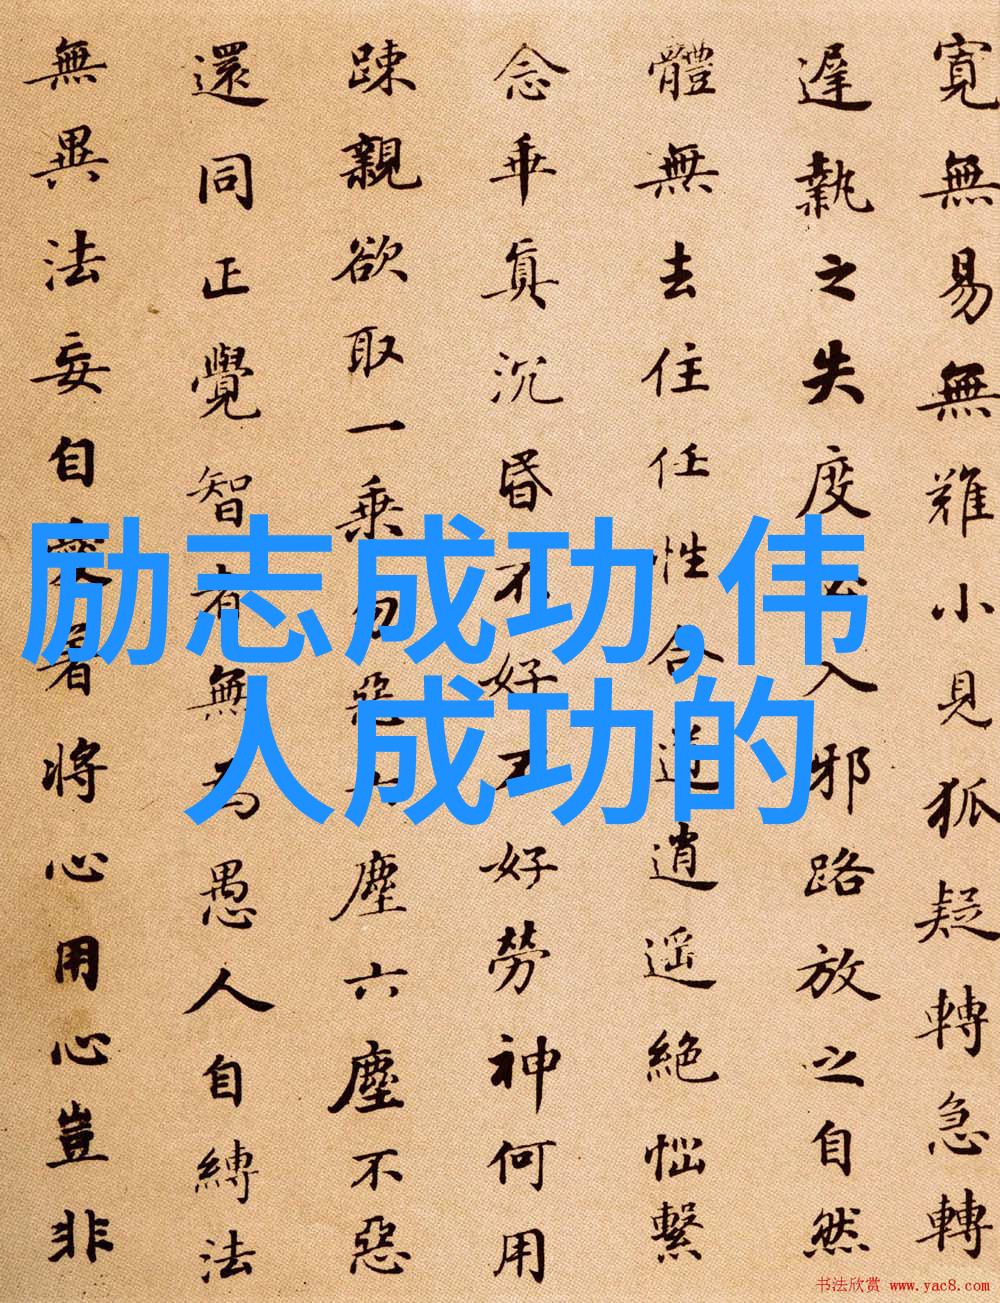 寬無易無難小見狐疑轉急轉
遲執之失度必入邪路放之自然
體無去住任性合道逍遥絶惱繫
念乖真沉昏不好不好勞神何用
疎親欲取一乘勿惡六塵六塵不惡
還同正覺智者無為愚人自縛法
無異法妄自愛著將心用心豈非
励志成功,伟
人成功的
书法欣赏 www.yac8.com